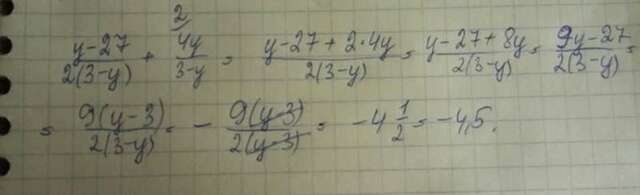 y-27/2(3-y) + 4y/3-y ² = y-27+2·4y/2(3-y) = y-27+8y/2(3-y) = 9y-27/2(3-y) =
= 9(y-3)/2(3-y) = - 9(y-3)/2(y-3) = -4 1/2 = -4,5.